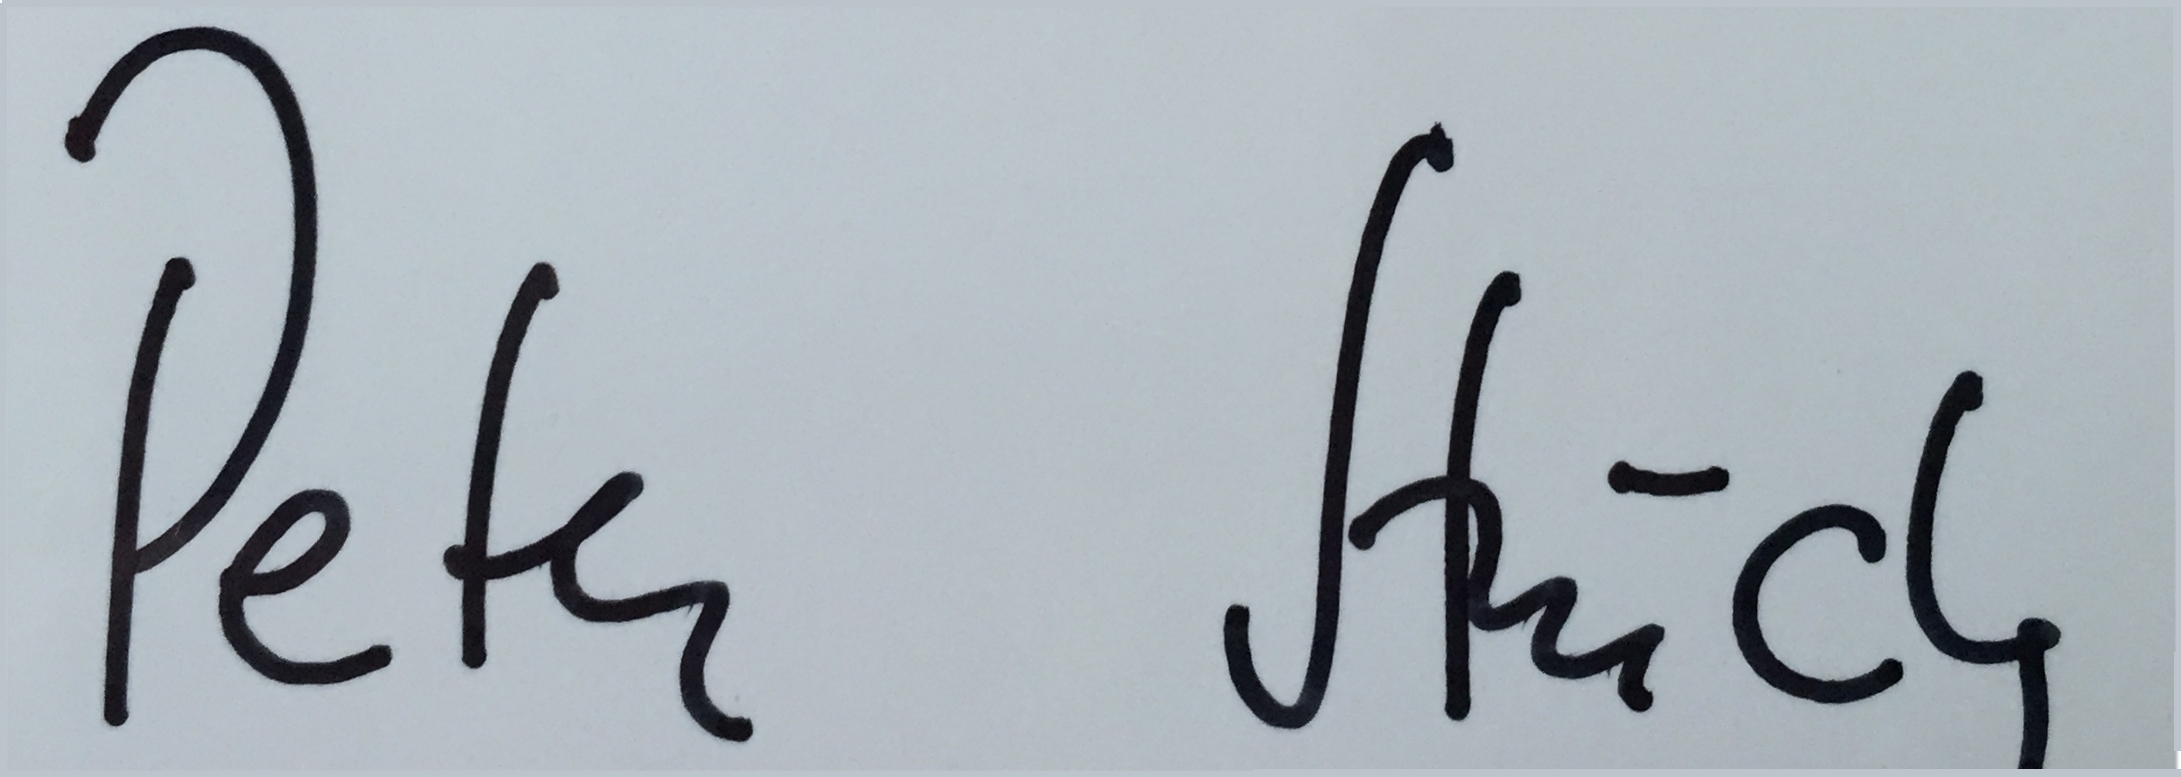 Peter Struck